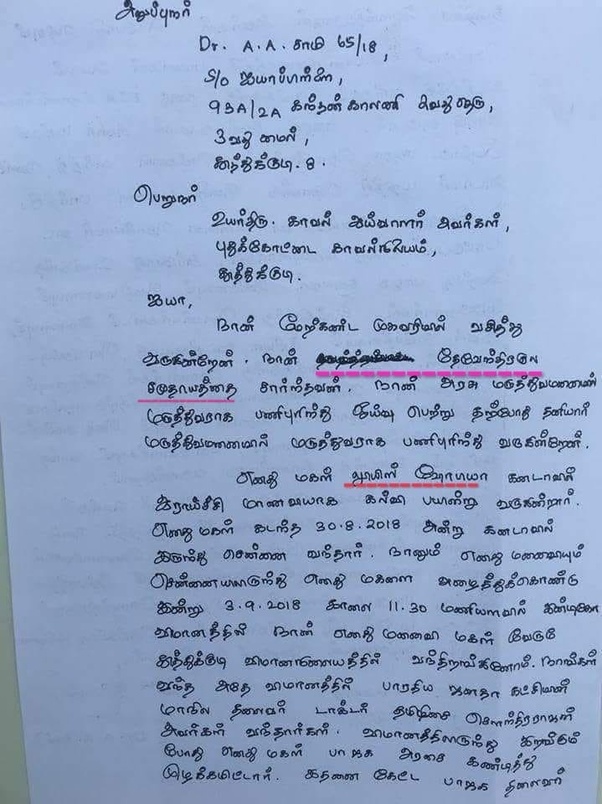 அனுப்புநர்
Dr. A. A. சாமி 65/18,
S/o ஐயாப்பிள்ளை,
93A/2A கந்தன் காலணி 2வது தெரு,
3வது மைல்,
தூத்துக்குடி. 8.
பெறுநர்
உயர்திரு. காவல் ஆய்வாளர் அவர்கள்,
புதுக்கோட்டை காவல்நிலையம்,
தூத்துக்குடி.
ஐயா,
நான் மேற்கண்ட முகவரியில் வசித்து
வருகின்றேன். நான் தேவேந்திரகுல
சமுதாயத்தை சார்ந்தவன். நான் அரசு மருத்துவமனையில்
மருத்துவராக பணிபுரிந்து ஓய்வு பெற்று தற்போது தனியார்
மருத்துவமனையில் மருத்துவராக பணிபுரிந்து வருகின்றேன்.
எனது மகள் லூயிஸ் ஷோபியா கனடாவில்
ஆராய்ச்சி மாணவியாக கல்வி பயின்று வருகின்றார்.
எனது மகள் கடந்த 30.8.2018 அன்று கனடாவில்
இருந்து சென்னை வந்தார். நானும் எனது மனைவியும்
சென்னையிலிருந்து எனது மகளை அழைத்துக்கொண்டு
இன்று 3.9.2018 காலை 11.30 மணியளவில் இண்டிகோ
விமானத்தில் நான் எனது மனைவி மகள் மூவரும்
தூத்துக்குடி விமானநிலையத்தில் வந்திறங்கினோம். நாங்கள்
வந்த அதே விமானத்தில் பாரதிய ஜனதா கட்சியின்
மாநில தலைவர் டாக்டர் தமிழிசை சௌந்திரராஜன்
அவர்கள் வந்தார்கள். விமானத்திலிருந்து இறங்கும்
போது எனது மகள் பாஜக அரசை கண்டித்து
முழக்கமிட்டார். இதனை கேட்ட பாஜக தலைவர்